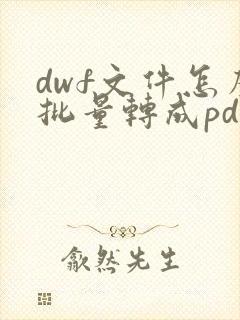 dwf文件怎
批量轉成pd
歙然先生